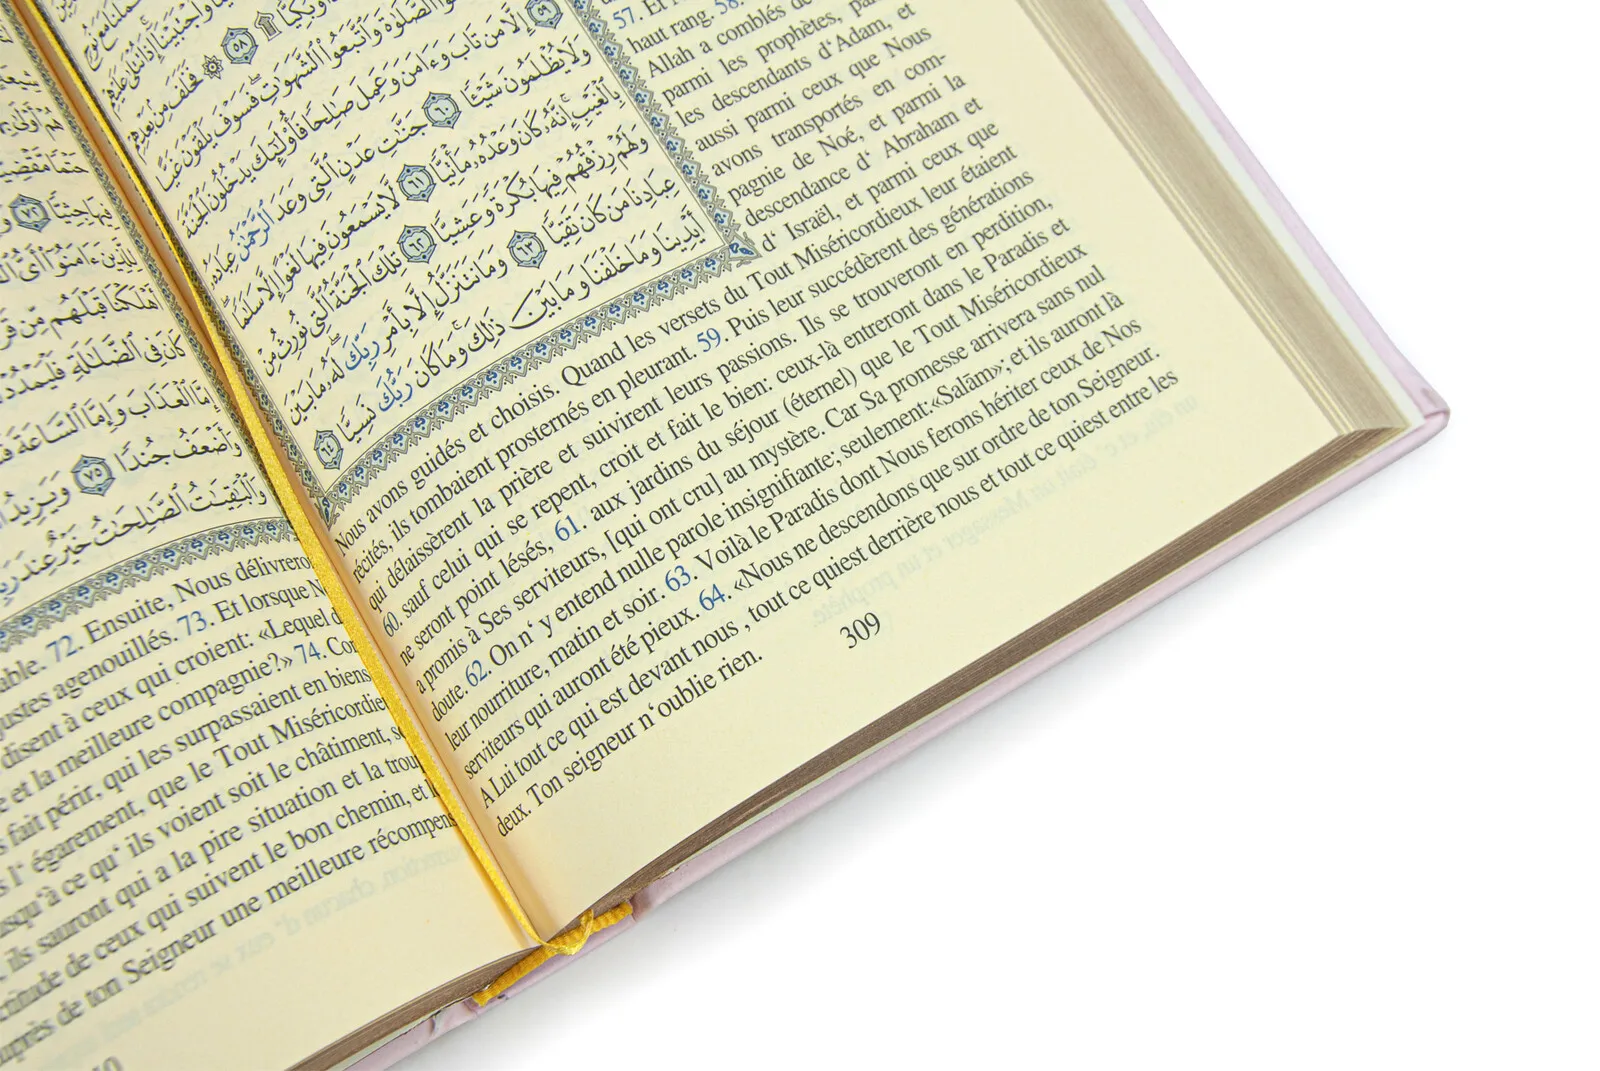 وَبُكِيًّا ۩ ٥٨ ۞ فَخَلَفَ مِنۢ بَعْدِهِمْ
ٱلصَّلَوٰةَ وَٱتَّبَعُوا۟ ٱلشَّهَوَٰتِ ۖ فَسَوْفَ يَلْقَوْنَ غَيًّا
٥٩ إِلَّا مَن تَابَ وَءَامَنَ وَعَمِلَ صَٰلِحًا فَأُو۟لَٰٓئِكَ يَدْخُلُونَ ٱلْجَنَّةَ
وَلَا يُظْلَمُونَ شَيْـًٔا ٦٠ جَنَّٰتِ عَدْنٍ ٱلَّتِى وَعَدَ ٱلرَّحْمَٰنُ عِبَادَهُۥ
بِٱلْغَيْبِ ۚ إِنَّهُۥ كَانَ وَعْدُهُۥ مَأْتِيًّا ٦١ لَّا يَسْمَعُونَ فِيهَا لَغْوًا إِلَّا سَلَٰمًا ۖ
وَلَهُمْ رِزْقُهُمْ فِيهَا بُكْرَةً وَعَشِيًّا ٦٢ تِلْكَ ٱلْجَنَّةُ ٱلَّتِى نُورِثُ مِنْ
عِبَادِنَا مَن كَانَ تَقِيًّا ٦٣ وَمَا نَتَنَزَّلُ إِلَّا بِأَمْرِ رَبِّكَ ۖ لَهُۥ مَا بَيْنَ
أَيْدِينَا وَمَا خَلْفَنَا وَمَا بَيْنَ ذَٰلِكَ ۚ وَمَا كَانَ رَبُّكَ نَسِيًّا ٦٤
57. Et
haut rang. 58.
Allah a comblés de
parmi les prophètes,
les descendants d'Adam, et
aussi parmi ceux que Nous
avons transportés en com-
pagnie de Noé, et parmi la
descendance d' Abraham et
d' Israël, et parmi ceux que
Nous avons guidés et choisis. Quand les versets du Tout Miséricordieux leur étaient
récités, ils tombaient prosternés en pleurant. 59. Puis leur succédèrent des générations
qui délaissèrent la prière et suivirent leurs passions. Ils se trouveront en perdition,
60. sauf celui qui se repent, croit et fait le bien: ceux-là entreront dans le Paradis et
ne seront point lésés, 61. aux jardins du séjour (éternel) que le Tout Miséricordieux
a promis à Ses serviteurs, [qui ont cru] au mystère. Car Sa promesse arrivera sans nul
doute. 62. On n' y entend nulle parole insignifiante; seulement:«Salām»; et ils auront là
leur nourriture, matin et soir. 63. Voilà le Paradis dont Nous ferons hériter ceux de Nos
serviteurs qui auront été pieux. 64. «Nous ne descendons que sur ordre de ton Seigneur.
A Lui tout ce qui est devant nous , tout ce quiest derrière nous et tout ce quiest entre les
deux. Ton seigneur n'oublie rien.
309
فِيهَا جِثِيًّا ٧٢
لِلَّذِينَ ءَامَنُوٓا۟ أَىُّ
أَهْلَكْنَا قَبْلَهُم مِّن
كَانَ فِى ٱلضَّلَٰلَةِ فَلْيَمْدُدْ
إِمَّا ٱلْعَذَابَ وَإِمَّا ٱلسَّاعَةَ
وَأَضْعَفُ جُندًا ٧٥ وَيَزِيدُ
وَٱلْبَٰقِيَٰتُ ٱلصَّٰلِحَٰتُ خَيْرٌ عِندَ
72. Ensuite, Nous
agenouillés. 73. Et lorsque
disent à ceux qui croient: «Lequel
et la meilleure compagnie?» 74.
fait périr, qui les surpassaient en biens
l' égarement, que le Tout
à ce qu' ils voient soit le châtiment,
ils sauront qui a la pire situation et la
de ceux qui suivent le bon chemin, et
de ton Seigneur une meilleure